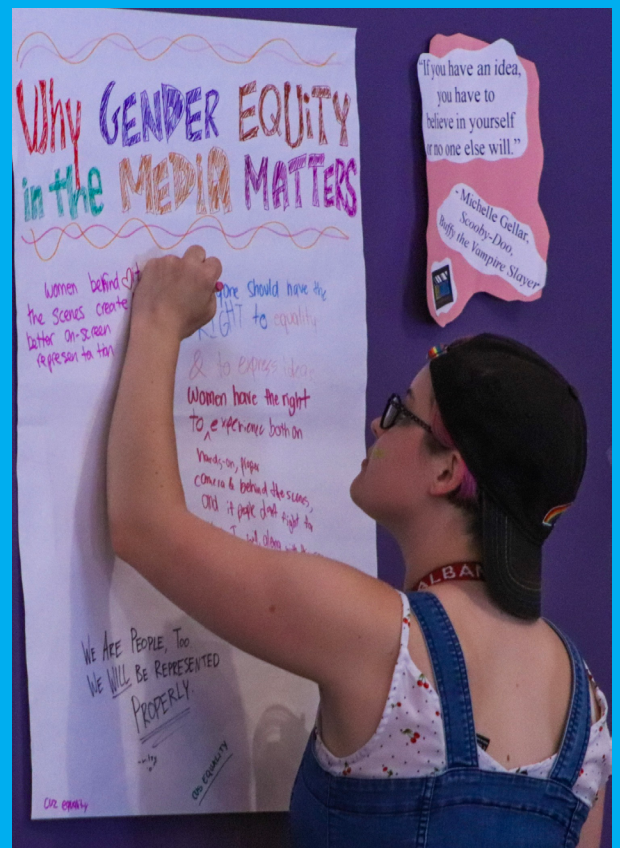 Why GENDER EQUITY
in the MEDIA MATTERS
women behind
the scenes create
better on-screen
representation
should have the
RIGHT to equality
& to express ideas
Women have the right
to experience both on
hands-on,
camera & behind the scenes,
and if people don't fight for
WE ARE PEOPLE, TOO.
WE WILL BE REPRESENTED
PROPERLY.
CUZ EQUALITY
cuz equality
"If you have an idea,
you have to
believe in yourself
or no one else will."
- Michelle Gellar,
Scooby-Doo,
Buffy the Vampire Slayer"
ALBAN